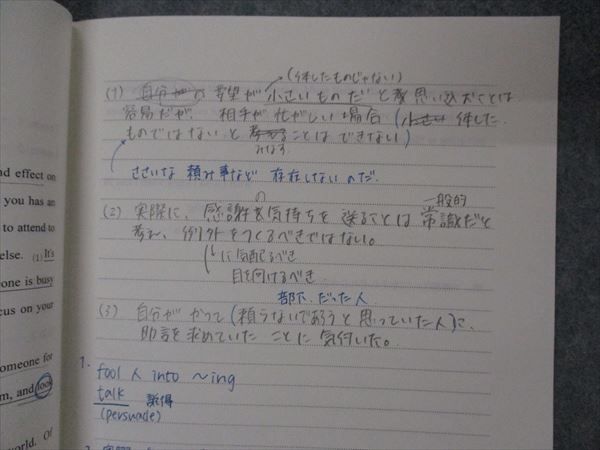 nd effect on
you has an
to attend to
else. (1)It's
one is busy
cus on your
omeone for
m, and look
world. Of
(大したものじゃない)
(1) 自分の要望が小さいものだと思い込むことは
容易だが、相手が忙がしい場合(大した
ものではないと ことはできない)
みなす
ささいな頼み事など存在しないのだ.
の 一般的
(2) 実際に、感謝 気持ちを送ることは常識だと
考え、例外をつくるべきではない。
に気配るべき
目を向けるべき
部下だった人
(3) 自分がかつて(頼らないであろうと思っていた人)に、
助言を求めていたことに気付いた。
1.
fool 人 into ~ing
talk 説得
(persuade)